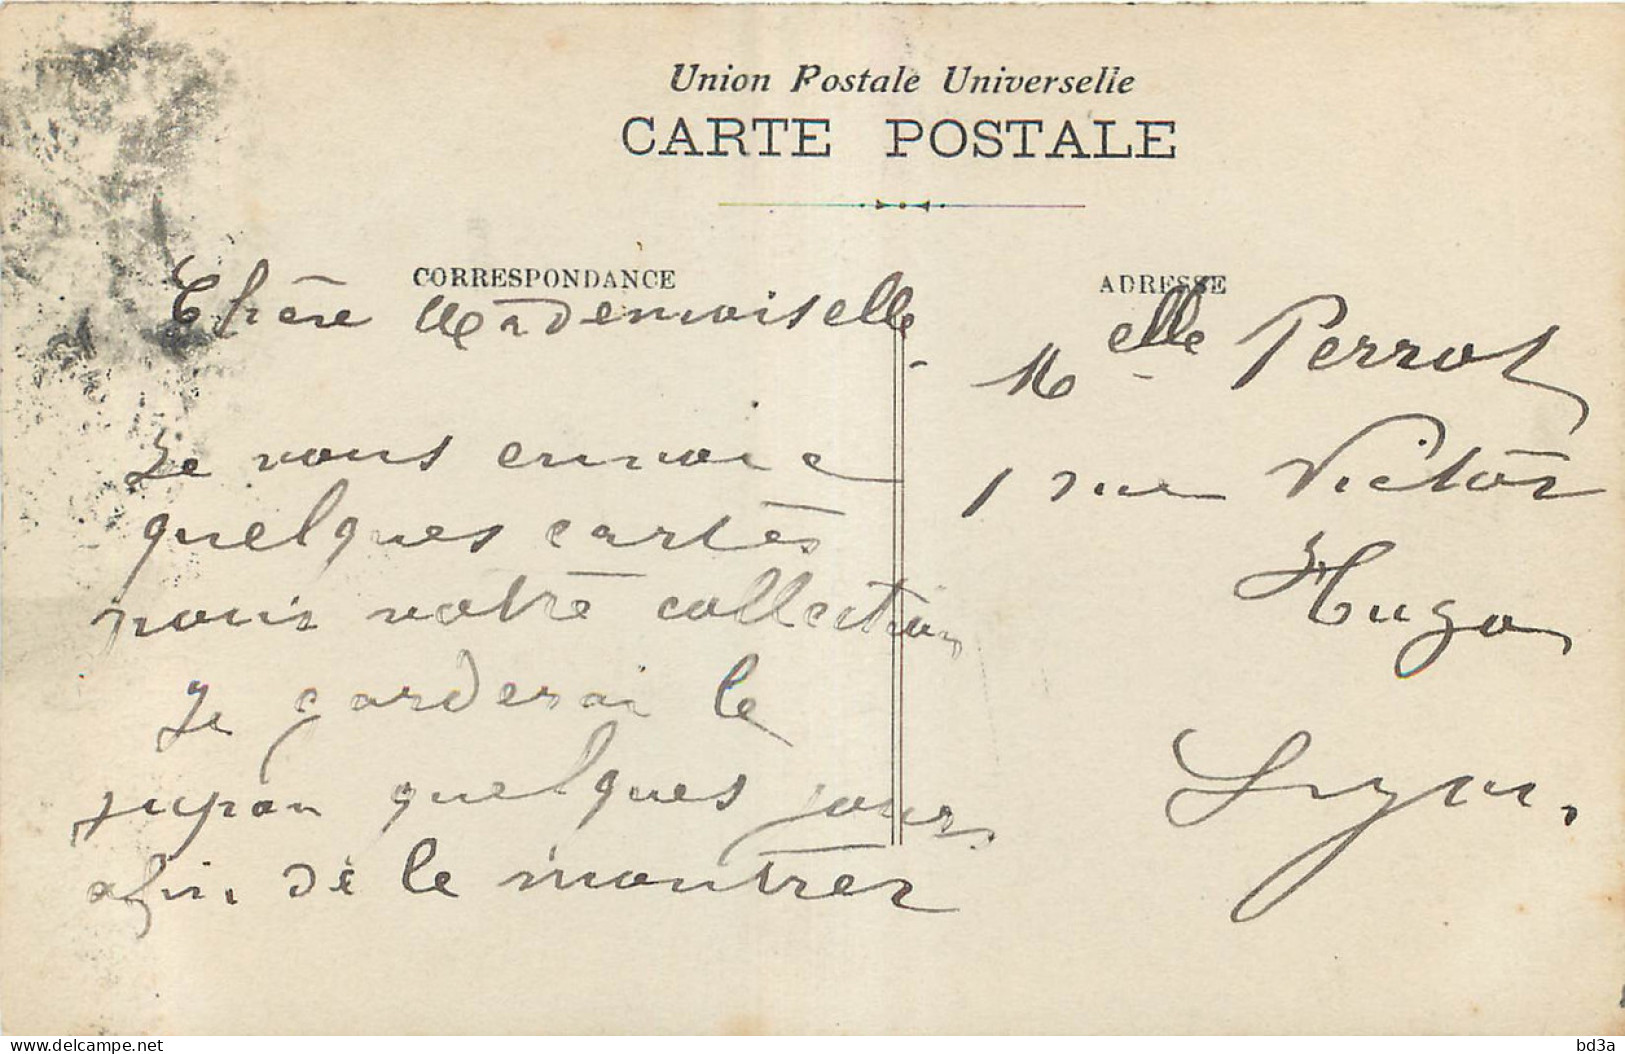 Union Postale Universelle
CARTE POSTALE
CORRESPONDANCE
Chère Mademoiselle
Je vous envoie
quelques cartes
pour votre collection
Je garderai le
jupon quelques jours
afin de le montrer
ADRESSE
Melle Perrot
1 rue Victor
Hugo
Lyon.
delcampe.net
bd3a